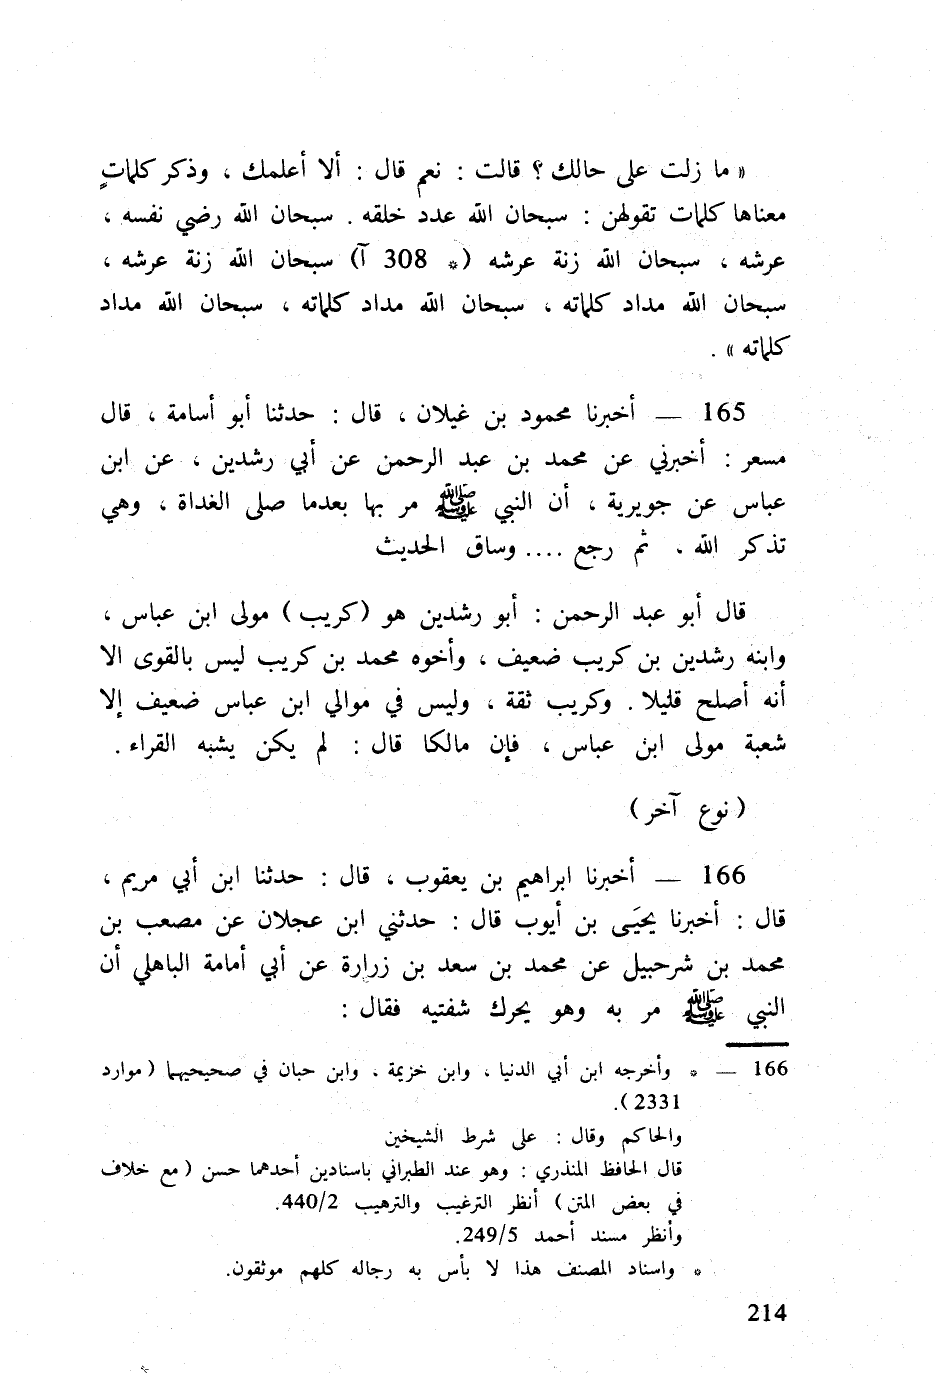 « ما زلت على حالك ؟ قالت : نعم قال : ألا أعلمك ، وذكر كلماتٍ
معناها كلمات تقولهن : سبحان الله عدد خلقه . سبحان الله رضي نفسه ،
عرشه ، سبحان الله زنة عرشه (* 308 آ) سبحان الله زنة عرشه ،
سبحان الله مداد كلماته ، سبحان الله مداد كلماته ، سبحان الله مداد
كلماته » .
165 — أخبرنا محمود بن غيلان ، قال : حدثنا أبو أسامة ، قال
مسعر : أخبرني عن محمد بن عبد الرحمن عن أبي رشدين ، عن ابن
عباس عن جويرية ، أن النبي ﷺ مر بها بعدما صلى الغداة ، وهي
تذكر الله . ثم رجع .... وساق الحديث
قال أبو عبد الرحمن : أبو رشدين هو (كريب) مولى ابن عباس ،
وابنه رشدين بن كريب ضعيف ، وأخوه محمد بن كريب ليس بالقوى الا
أنه أصلح قليلا . وكريب ثقة ، وليس في موالي ابن عباس ضعيف إلا
شعبة مولى ابن عباس ، فإن مالكا قال : لم يكن يشبه القراء .
(نوع آخر)
166 — أخبرنا ابراهيم بن يعقوب ، قال : حدثنا ابن أبي مريم ،
قال : أخبرنا يحيَى بن أيوب قال : حدثني ابن عجلان عن مصعب بن
محمد بن شرحبيل عن محمد بن سعد بن زرارة عن أبي أمامة الباهلي أن
النبي ﷺ مر به وهو يحرك شفتيه فقال :
166 — * وأخرجه ابن أبي الدنيا ، وابن خزيمة ، وابن حبان في صحيحيهما (موارد
2331).
والحاكم وقال : على شرط الشيخين
قال الحافظ المنذري : وهو عند الطبراني باسنادين أحدهما حسن (مع خلاف
في بعض المتن) أنظر الترغيب والترهيب 440/2.
وأنظر مسند أحمد 249/5.
* واسناد المصنف هذا لا بأس به رجاله كلهم موثقون.
214